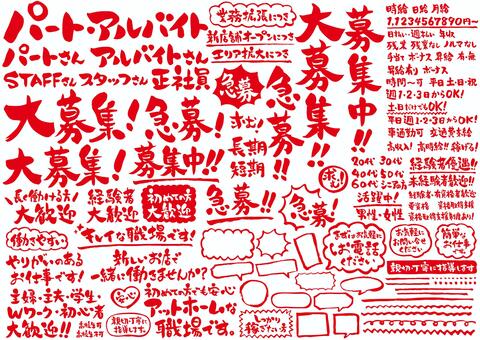 パート・アルバイト
パートさん アルバイトさん
STAFFさん スタッフさん 正社員
大募集! 急募!
大募集! 募集中!!
長く働ける方!
大歓迎
経験者
大歓迎
初めての方
大歓迎
働きやすい
キレイな職場です!
やりがいのある
お仕事です!
新しいお店で
一緒に働きませんか?
主婦・主夫・学生・
Wワーク・初心者
大歓迎!!
安心
親切・丁寧に
指導します。
初めての方でも安心
アットホームな
職場です。
業務拡張につき
新店舗オープンにつき
エリア拡大につき
急募
求む!
長期
短期
急募!!
急募!!
急募!
大募集!!
募集中!!
求む!
まずはお気軽に
お電話
ください。
しっかり
稼ぎたい方
時給 日給 月給
1,234567890円~
日払い・週払い 年収
残業 残業なし ノルマなし
手当て ボーナス 昇給 有・無
昇給有り ボーナス
時間~可 平日 土・日・祝
週1・2・3日からOK!
土日だけでもOK!
平日 週1・2・3からOK!
車通勤可 交通費支給
高収入! 高時給!! 稼げる!
20代 30代
40代 50代
60代 シニアの方
活躍中!
男性・女性
経験者優遇!!
未経験者歓迎!!
お気軽に
お問い合せ
ください
簡単な
お仕事
です
親切・丁寧に指導します